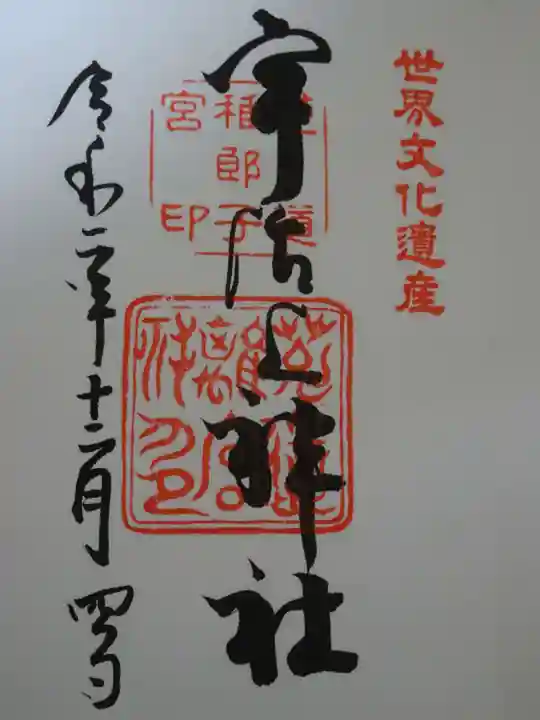 世界文化遺産
宇治上神社
莵道
稚郎子
宮印
令和二年十二月四日